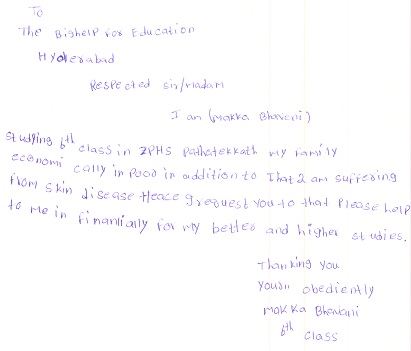 To
The Bighelp for Education
Hyderabad
Respected sir/madam
I am (Makka Bhavani)
Studying 6th class in ZPHS Pathatekkath my family
economi cally in Poor in addition to That I am suffering
from skin disease Heace I request You to that Please help
to me in finantially for my better and higher studies.
Thanking you
Yours obediently
Makka Bhavani
6th class